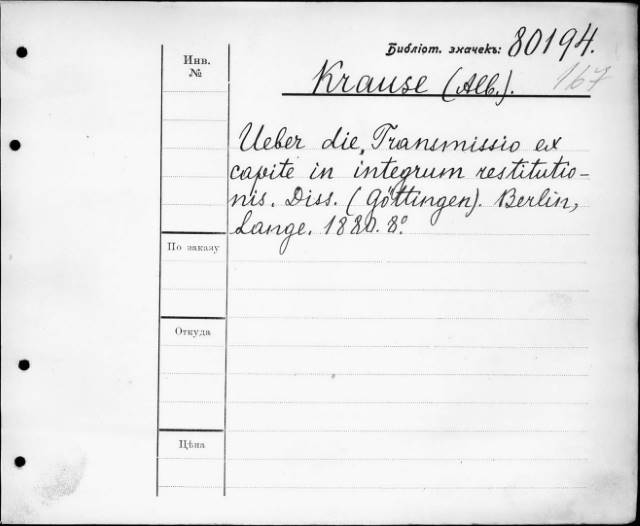 Библіот. значекъ: 80194.
Инв.
№
Krause (Alb.). 167
Ueber die „Transmissio ex
capite in integrum restitutio-
nis. Diss. (Göttingen). Berlin,
Lange. 1880. 8°.
По заказу
Откуда
Цѣна